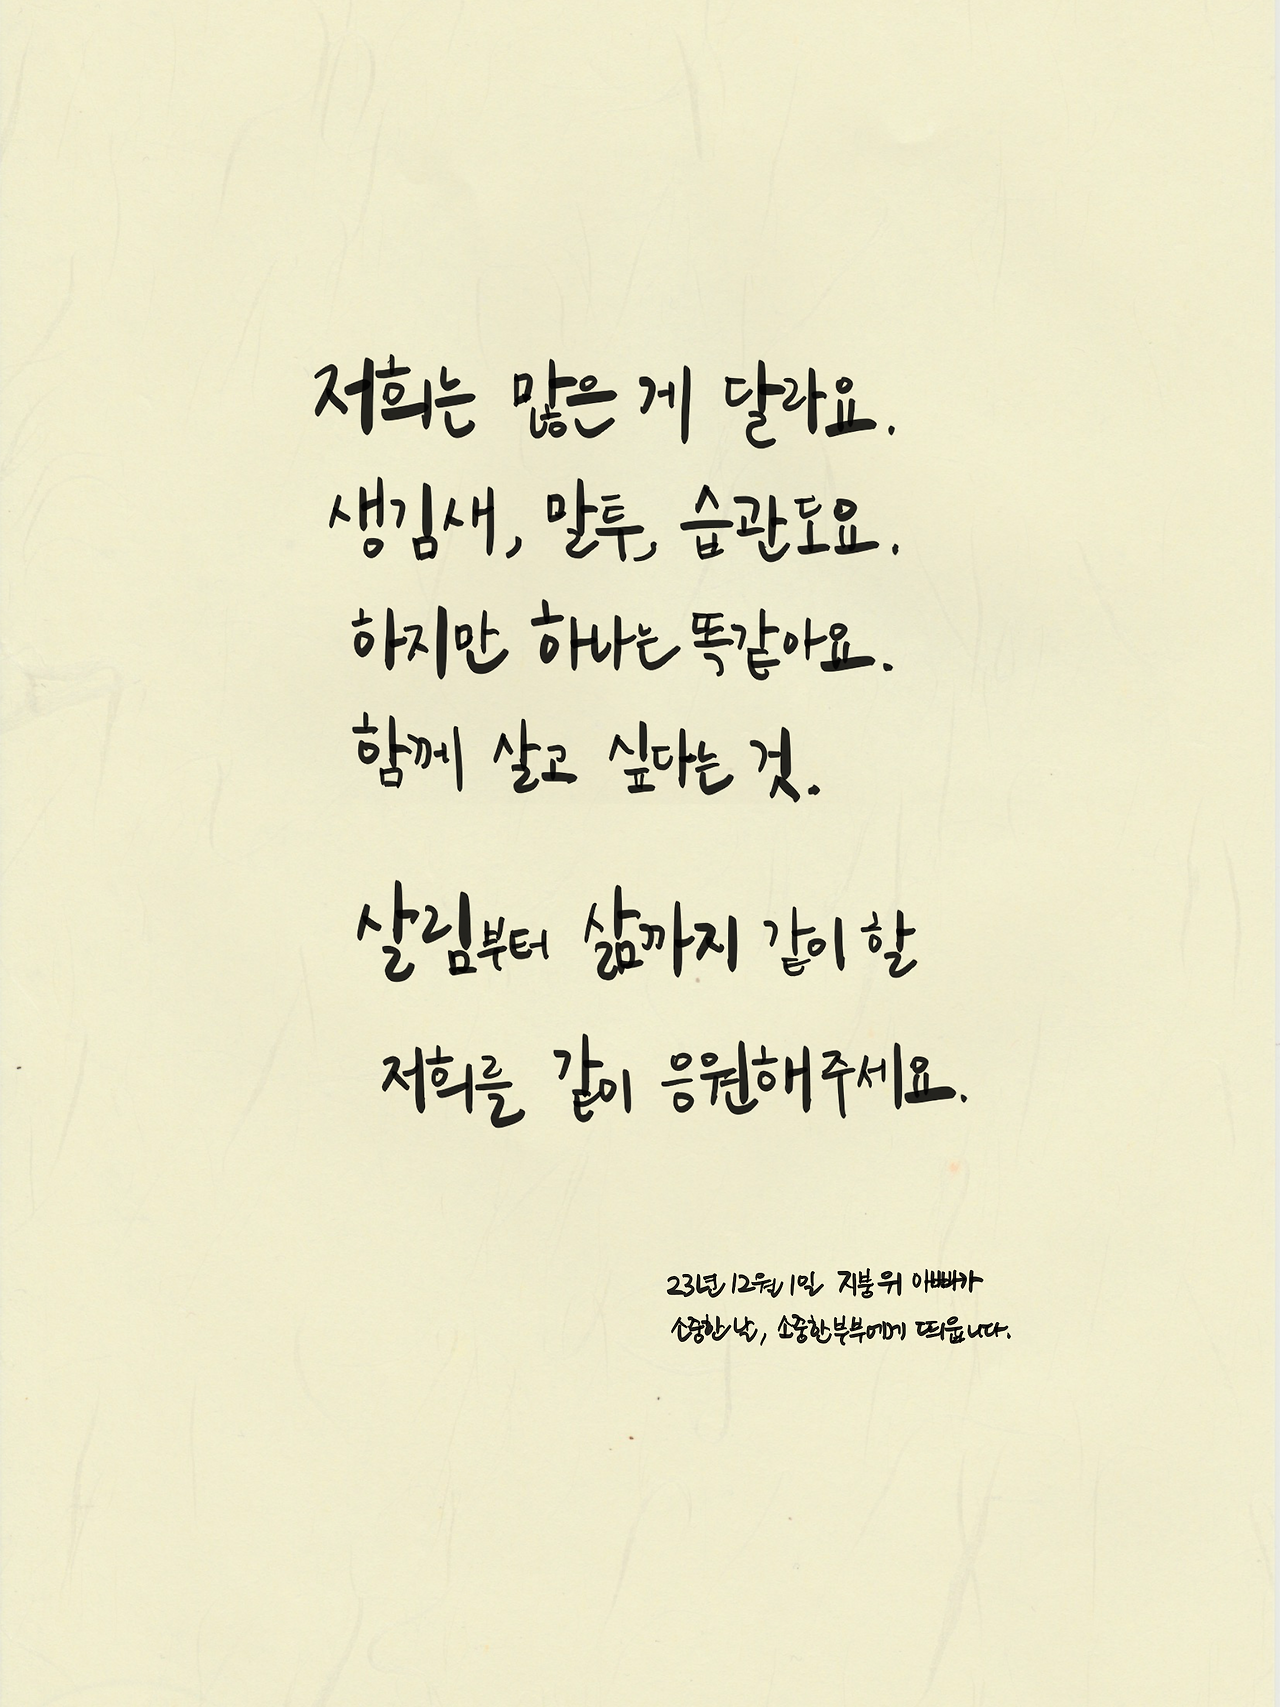 저희는 많은 게 달라요.
생김새, 말투, 습관도요.
하지만 하나는 똑같아요.
함께 살고 싶다는 것.
살림부터 삶까지 같이 할
저희를 같이 응원해주세요.
23년 12월 1일 지붕위 아빠가
소중한 날, 소중한 부부에게 띄웁니다.